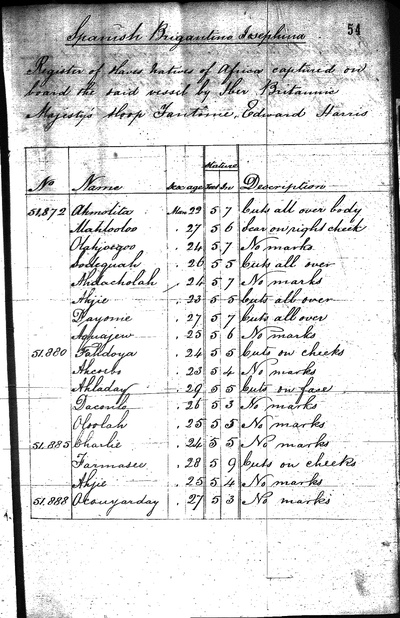 54
Spanish Brigantine Josephina
Register of Slaves Natives of Africa captured on
board the said vessel by Her Britannic
Majesty's Sloop Fantome, Edward Harris
Stature
No Name Sex age Feet In Description
51,872 Ahmotita Man 22 5 7 Cuts all over body
Mahlooloo . 27 5 6 Scar on right cheek
. 24 5 7 No marks
. 26 5 5 Cuts all over
Ahdacholah . 24 5 7 No marks
Ahjie . 23 5 5 Cuts all over
Dayome . 27 5 7 Cuts all over
. 25 5 6 No marks
51,880 Fahdoya . 24 5 5 Cuts on cheeks
. 23 5 4 No marks
Ahladay . 29 5 5 Cuts on face
. 26 5 3 No marks
Ofoolah . 25 5 5 No marks
51,885 Charlie . 24 5 5 No marks
Farmasee . 28 5 9 Cuts on cheeks
Ahjie . 25 5 4 No marks
51,888 Ocouyarday . 27 5 3 No marks